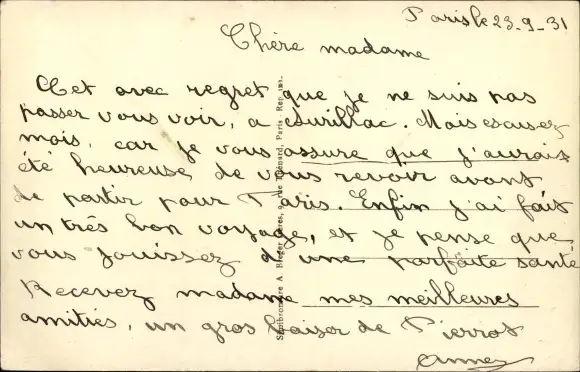 Paris le 23-9-31
Chère madame
Cet avec regret que je ne suis pas
passer vous voir, a Aurillac. Mais escusez
mois, car je vous assure que j'aurais
été heureuse, de vous revoir avant
de partir pour Paris. Enfin j'ai fait
un très bon voyage, et je pense que
vous jouissez d'une parfaite santé
Recevez madame mes meilleures
amitiés, un gros baiser de Pierrot
Simili-bromure A. Breger Frères, 9, rue Thénard, Paris